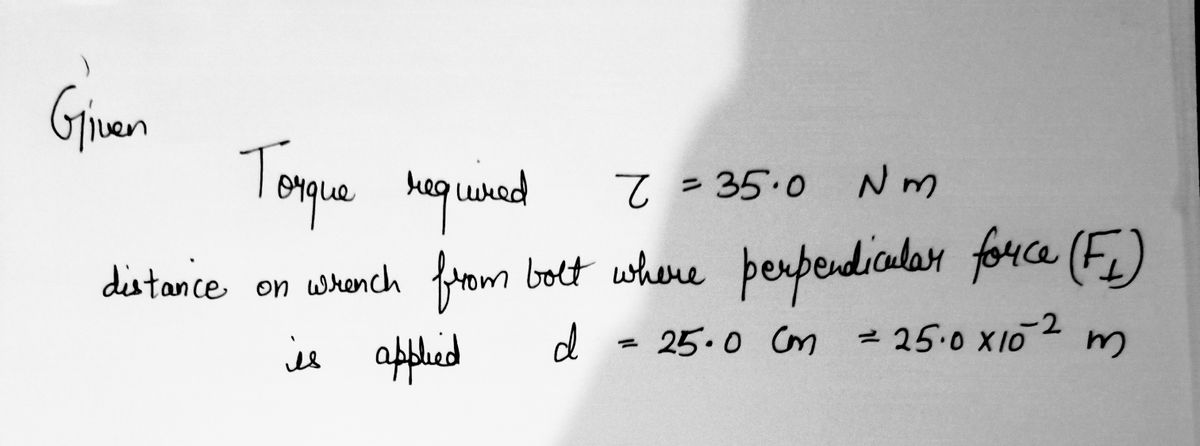 Given
Torque required τ = 35.0 N m
distance on wrench from bolt where perpendicular force (F⊥)
is applied d = 25.0 cm = 25.0 x10⁻² m